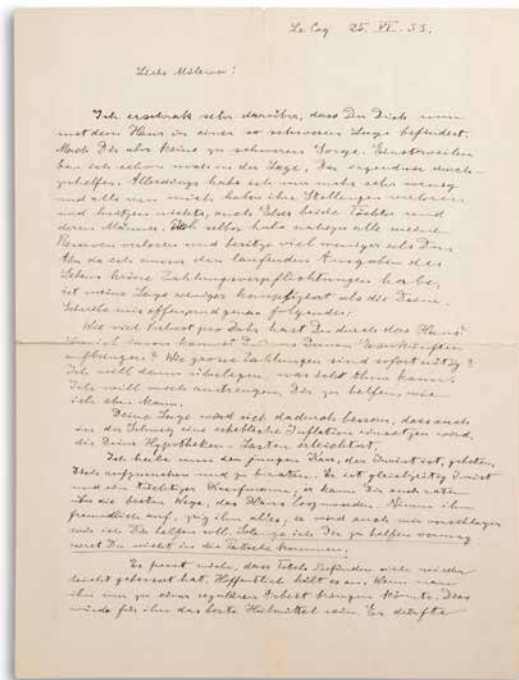 Le Coq 25. VI. 33.
Liebe Mileva!
Ich erschrak sehr darüber, dass Du Dich nun
mit dem Haus in einer so schweren Lage befindest.
Mach Dir aber keine zu schweren Sorge. Einstweilen
bin ich schon noch in der Lage, Dir irgendwie durch-
zuhelfen. Allerdings habe ich nur mehr sehr wenig
und alle um mich haben ihre Stellungen verloren
und besitzen nichts, auch Elsas beide Töchter und
deren Männer. Ich selber habe nahezu alle meine
Reserven verloren und besitze viel weniger als Du.
Aber da ich ausser den laufenden Ausgaben des
Lebens keine Zahlungsverpflichtungen habe,
ist meine Lage weniger kompliziert als die Deine.
Schreibe mir offen und genau folgendes:
Wie viel Verlust pro Jahr hast Du durch das Haus?
Wie viel kannst Du aus Deinen Einkünften
aufbringen? Wie grosse Zahlungen sind sofort nötig?
Ich will dann überlegen, was ich thun kann.
Ich will mich anstrengen, Dir zu helfen, wie
ich eben kann.
Deine Lage wird sich dadurch bessern, dass auch
in der Schweiz eine erhebliche Inflation einsetzen wird,
die Deine Hypotheken-Lasten erleichtert.
Ich habe nun den jungen Karr, der Jurist ist, gebeten,
Dich aufzusuchen und zu beraten. Er ist gleichzeitig Jurist
und ein tüchtiger Kaufmann, er kann Dir auch raten
über die besten Wege, das Haus loszuwerden. Nimm ihn
freundlich auf, zeig ihm alles; er wird auch mir vorschlagen
wie ich Dir helfen soll. Solange ich Dir zu helfen vermag
wirst Du nicht in die Patsche kommen.
Es freut mich, dass Tetels Befinden sich wieder
leicht gebessert hat. Hoffentlich hält es an. Wenn man
ihn nur zu einer regulären Arbeit bringen könnte. Dies
würde für ihn das beste Heilmittel sein. Er dürfte